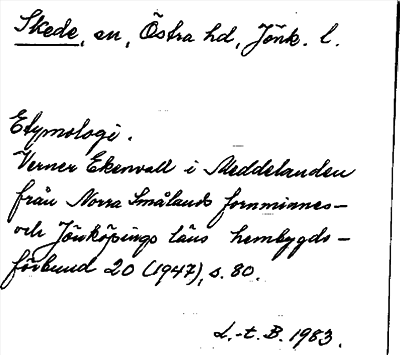 Skede, sn, Östra hd, Jönk. l.
Etymologi.
Verner Ekenvall i Meddelanden
från Norra Smålands fornminnes-
och Jönköpings läns hembygds-
förbund 20 (1947), s. 80.
L.-t. B. 1983.